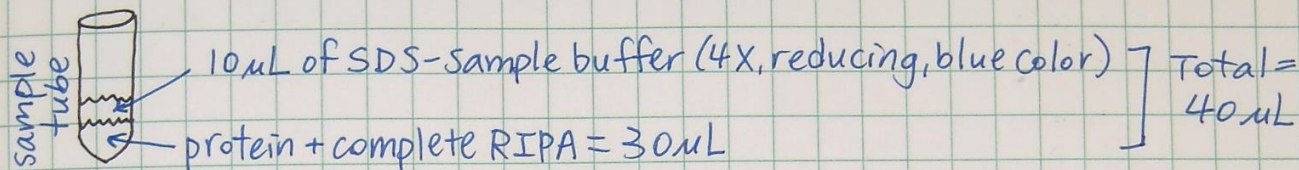 sample
tube
10 µL of SDS-sample buffer (4X, reducing, blue color)
protein + complete RIPA = 30 µL
Total =
40 µL